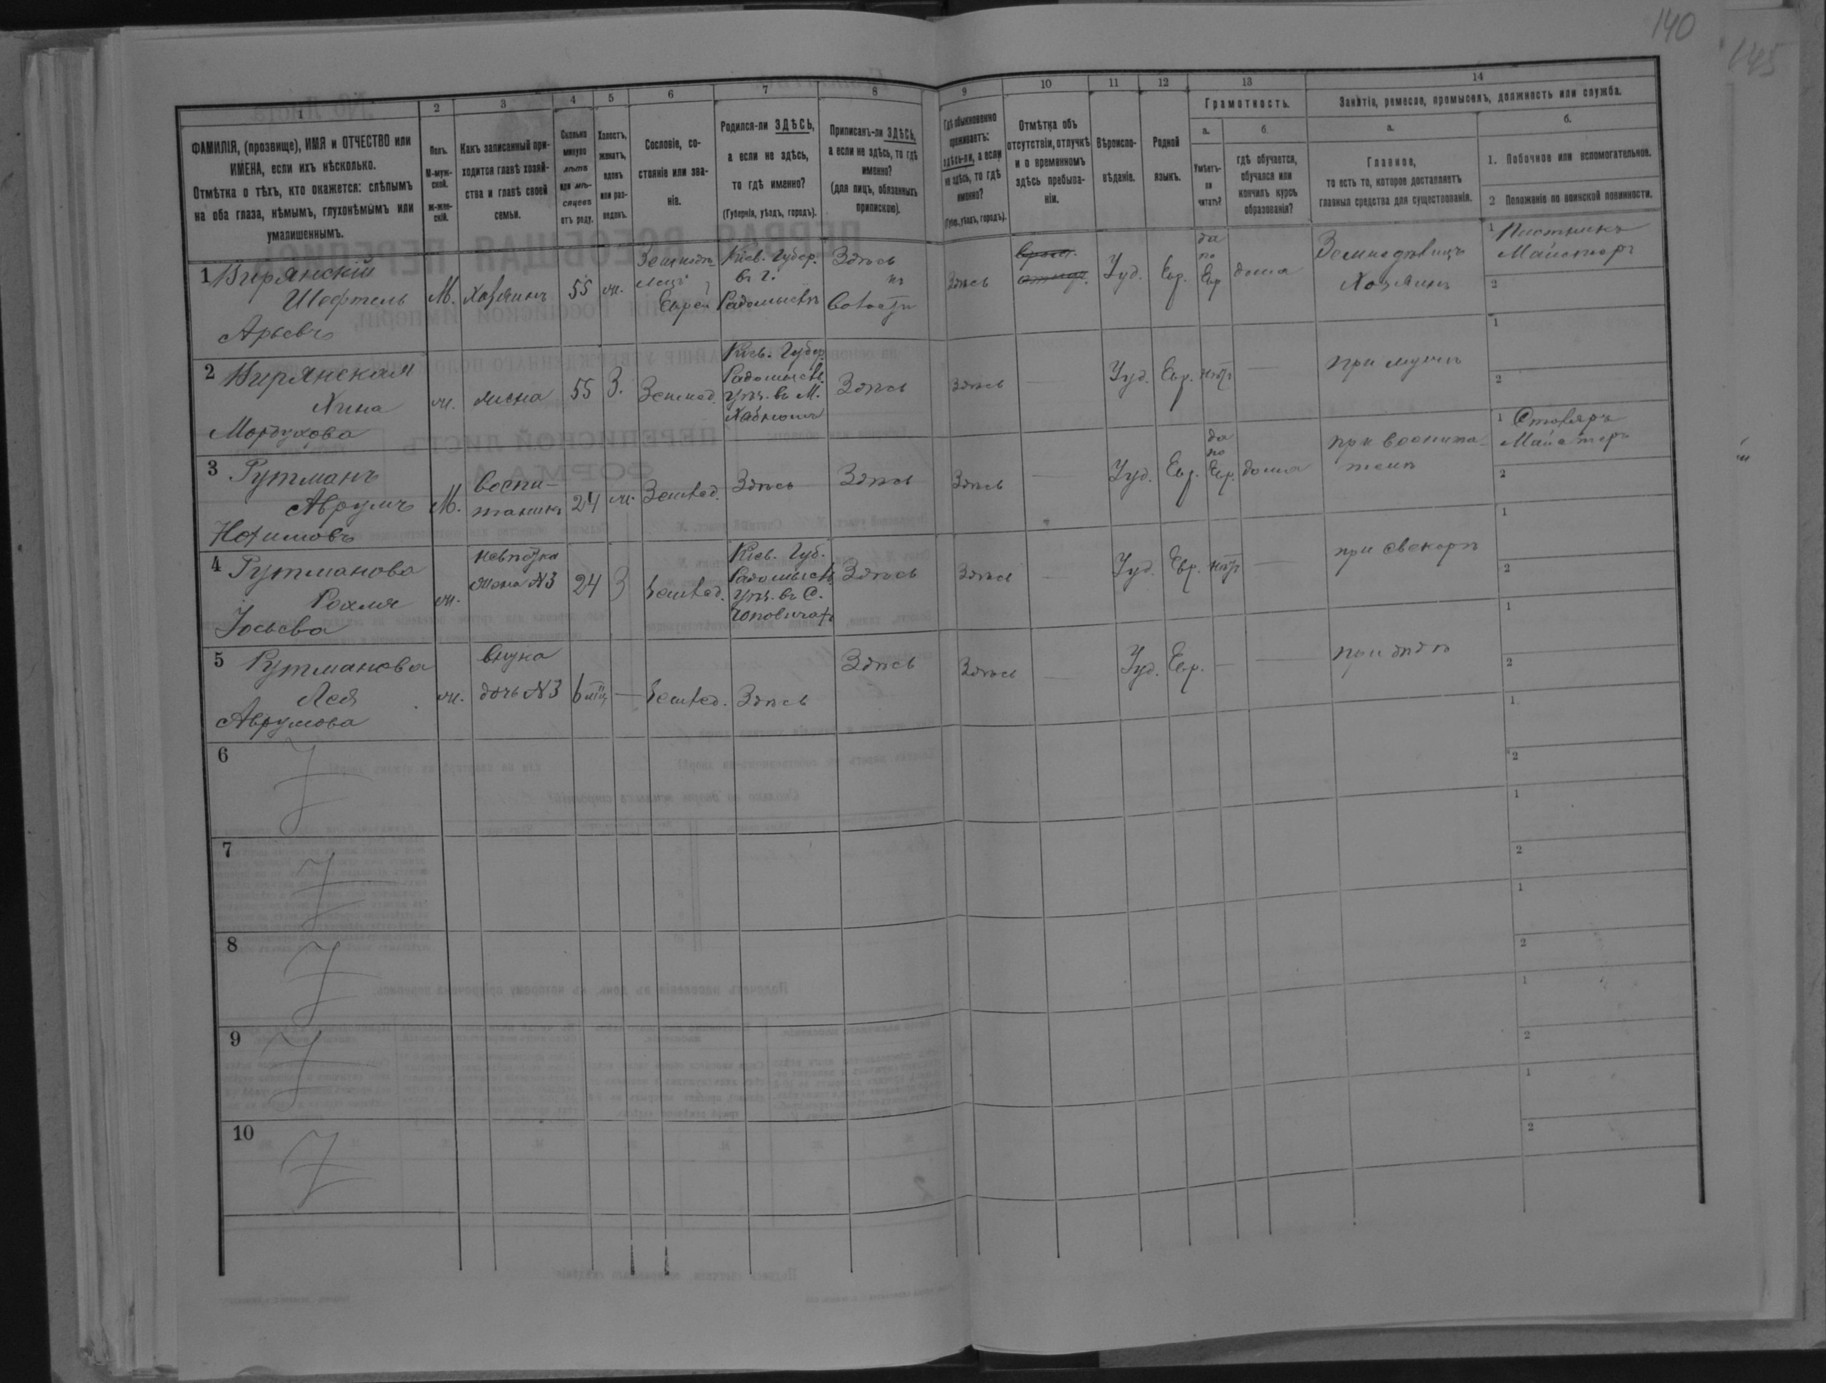 140
145
1 2 3 4 5 6 7 8 9 10 11 12 13 14
ФАМИЛІЯ, (прозвище), ИМЯ и ОТЧЕСТВО или
ИМЕНА, если ихъ нѣсколько.
Отмѣтка о тѣхъ, кто окажется: слѣпымъ
на оба глаза, нѣмымъ, глухонѣмымъ или
умалишеннымъ.
Полъ.
М-муж-
ской.
ж-жен-
скій.
Какъ записанный при-
ходится главѣ хозяй-
ства и главѣ своей
семьи.
Сколько
минуло
лѣтъ
или мѣ-
сяцевъ
отъ роду.
Холостъ,
женатъ,
вдовъ
или раз-
веденъ.
Сословіе, со-
стояніе или зва-
ніе.
Родился-ли ЗДѢСЬ,
а если не здѣсь,
то гдѣ именно?
(Губернія, уѣздъ, городъ).
Приписанъ-ли ЗДѢСЬ,
а если не здѣсь, то гдѣ
именно?
(для лицъ, обязанныхъ
припискою).
Гдѣ обыкновенно
проживаетъ:
здѣсь-ли, а если
не здѣсь, то гдѣ
именно?
(Губ., уѣздъ, городъ).
Отмѣтка объ
отсутствіи, отлучкѣ
и о временномъ
здѣсь пребыва-
ніи.
Вѣроиспо-
вѣданіе.
Родной
языкъ.
Грамотность.
а.
Умѣетъ-
ли
читать?
б.
гдѣ обучается,
обучался или
кончилъ курсъ
образованія?
Занятіе, ремесло, промыселъ, должность или служба.
а.
Главное,
то есть то, которое доставляетъ
главныя средства для существованія.
б.
1. Побочное или вспомогательное.
2 Положаніе по воинской повинности.
1 Вирянскій
Шефтель
Арьевъ
М.
Хазяинъ
55
ж.
Еврей
Кіев. Губер.
в г.
Радомыслѣ
Здѣсь
Здѣсь
Іуд.
Евр.
да
по
Евр
дома
Земледѣлецъ
Хозяинъ
1
Майстеръ
2
2 Вирянская
Хина
Мордухова
ж.
жена
55
З.
Землед.
Кіев. Губер.
Радомысл.
уѣз. въ М.
Хабномъ
Здѣсь
Здѣсь
Іуд.
Евр.
нѣтъ
при мужѣ
1
2
3 Рутманъ
Аврумъ
Нохимовъ
М.
воспи-
танникъ
24
ж.
Землед.
Здѣсь
Здѣсь
Здѣсь
Іуд.
Евр.
да
по
Евр.
дома
при воспита-
телѣ
1 Столяръ
Майстеръ
2
4 Рутманова
Рохля
Іосьева
ж.
невѣстка
жена №3
24
З
Землед.
Кіев. Губ.
Радомысл.
уѣз. въ С.
Чоповичахъ
Здѣсь
Здѣсь
Іуд.
Евр.
нѣтъ
при свекорѣ
1
2
5 Рутманова
Лея
Аврумова
ж.
внука
дочь №3
6 мѣц.
Землед.
Здѣсь
Здѣсь
Здѣсь
Іуд.
Евр.
при дѣдѣ
1
2
6
1
2
7
1
2
8
1
2
9
1
2
10
1
2